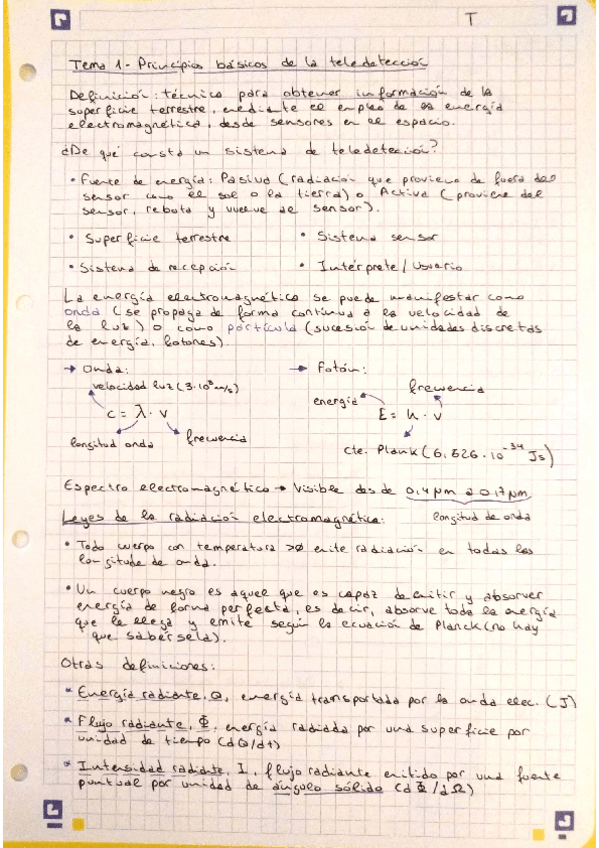 T
Tema 1- Principios básicos de la teledetección
Definición: técnica para obtener información de la
superficie terrestre, mediante el empleo de la energía
electromagnética, desde sensores en el espacio.
¿De qué consta un sistema de teledetección?
• Fuente de energía: Pasiva (radiación que proviene de fuera del
sensor como el sol o la tierra) o Activa (proviene del
sensor, rebota y vuelve al sensor).
• Superficie terrestre • Sistema sensor
• Sistema de recepción • Intérprete / Usuario
La energía electromagnética se puede manifestar como
onda (se propaga de forma continua a la velocidad de
la luz) o como partícula (sucesión de unidades discretas
de energía, fotones).
→ Onda: → Fotón:
velocidad luz (3·10⁸ m/s) frecuencia
energía
c = λ · v E = h · v
longitud onda frecuencia
cte. Plank (6,626·10⁻³⁴ Js)
Espectro electromagnético → Visible des de 0,4 μm a 0,7 μm
Leyes de la radiación electromagnética: longitud de onda
• Todo cuerpo con temperatura >0 emite radiación en todas las
longitude de onda.
• Un cuerpo negro es aquel que es capaz de emitir y absorver
energía de forma perfecta, es decir, absorve toda la energía
que le llega y emite según la ecuación de Planck (no hay
que sabérsela).
Otras definiciones:
* Energía radiante, Q, energía transportada por la onda elec. (J)
* Flujo radiante, Φ, energía radiada por una superficie por
unidad de tiempo (dQ/dt)
* Intensidad radiante, I, flujo radiante emitido por una fuente
puntual por unidad de ángulo sólido (dΦ/dΩ)